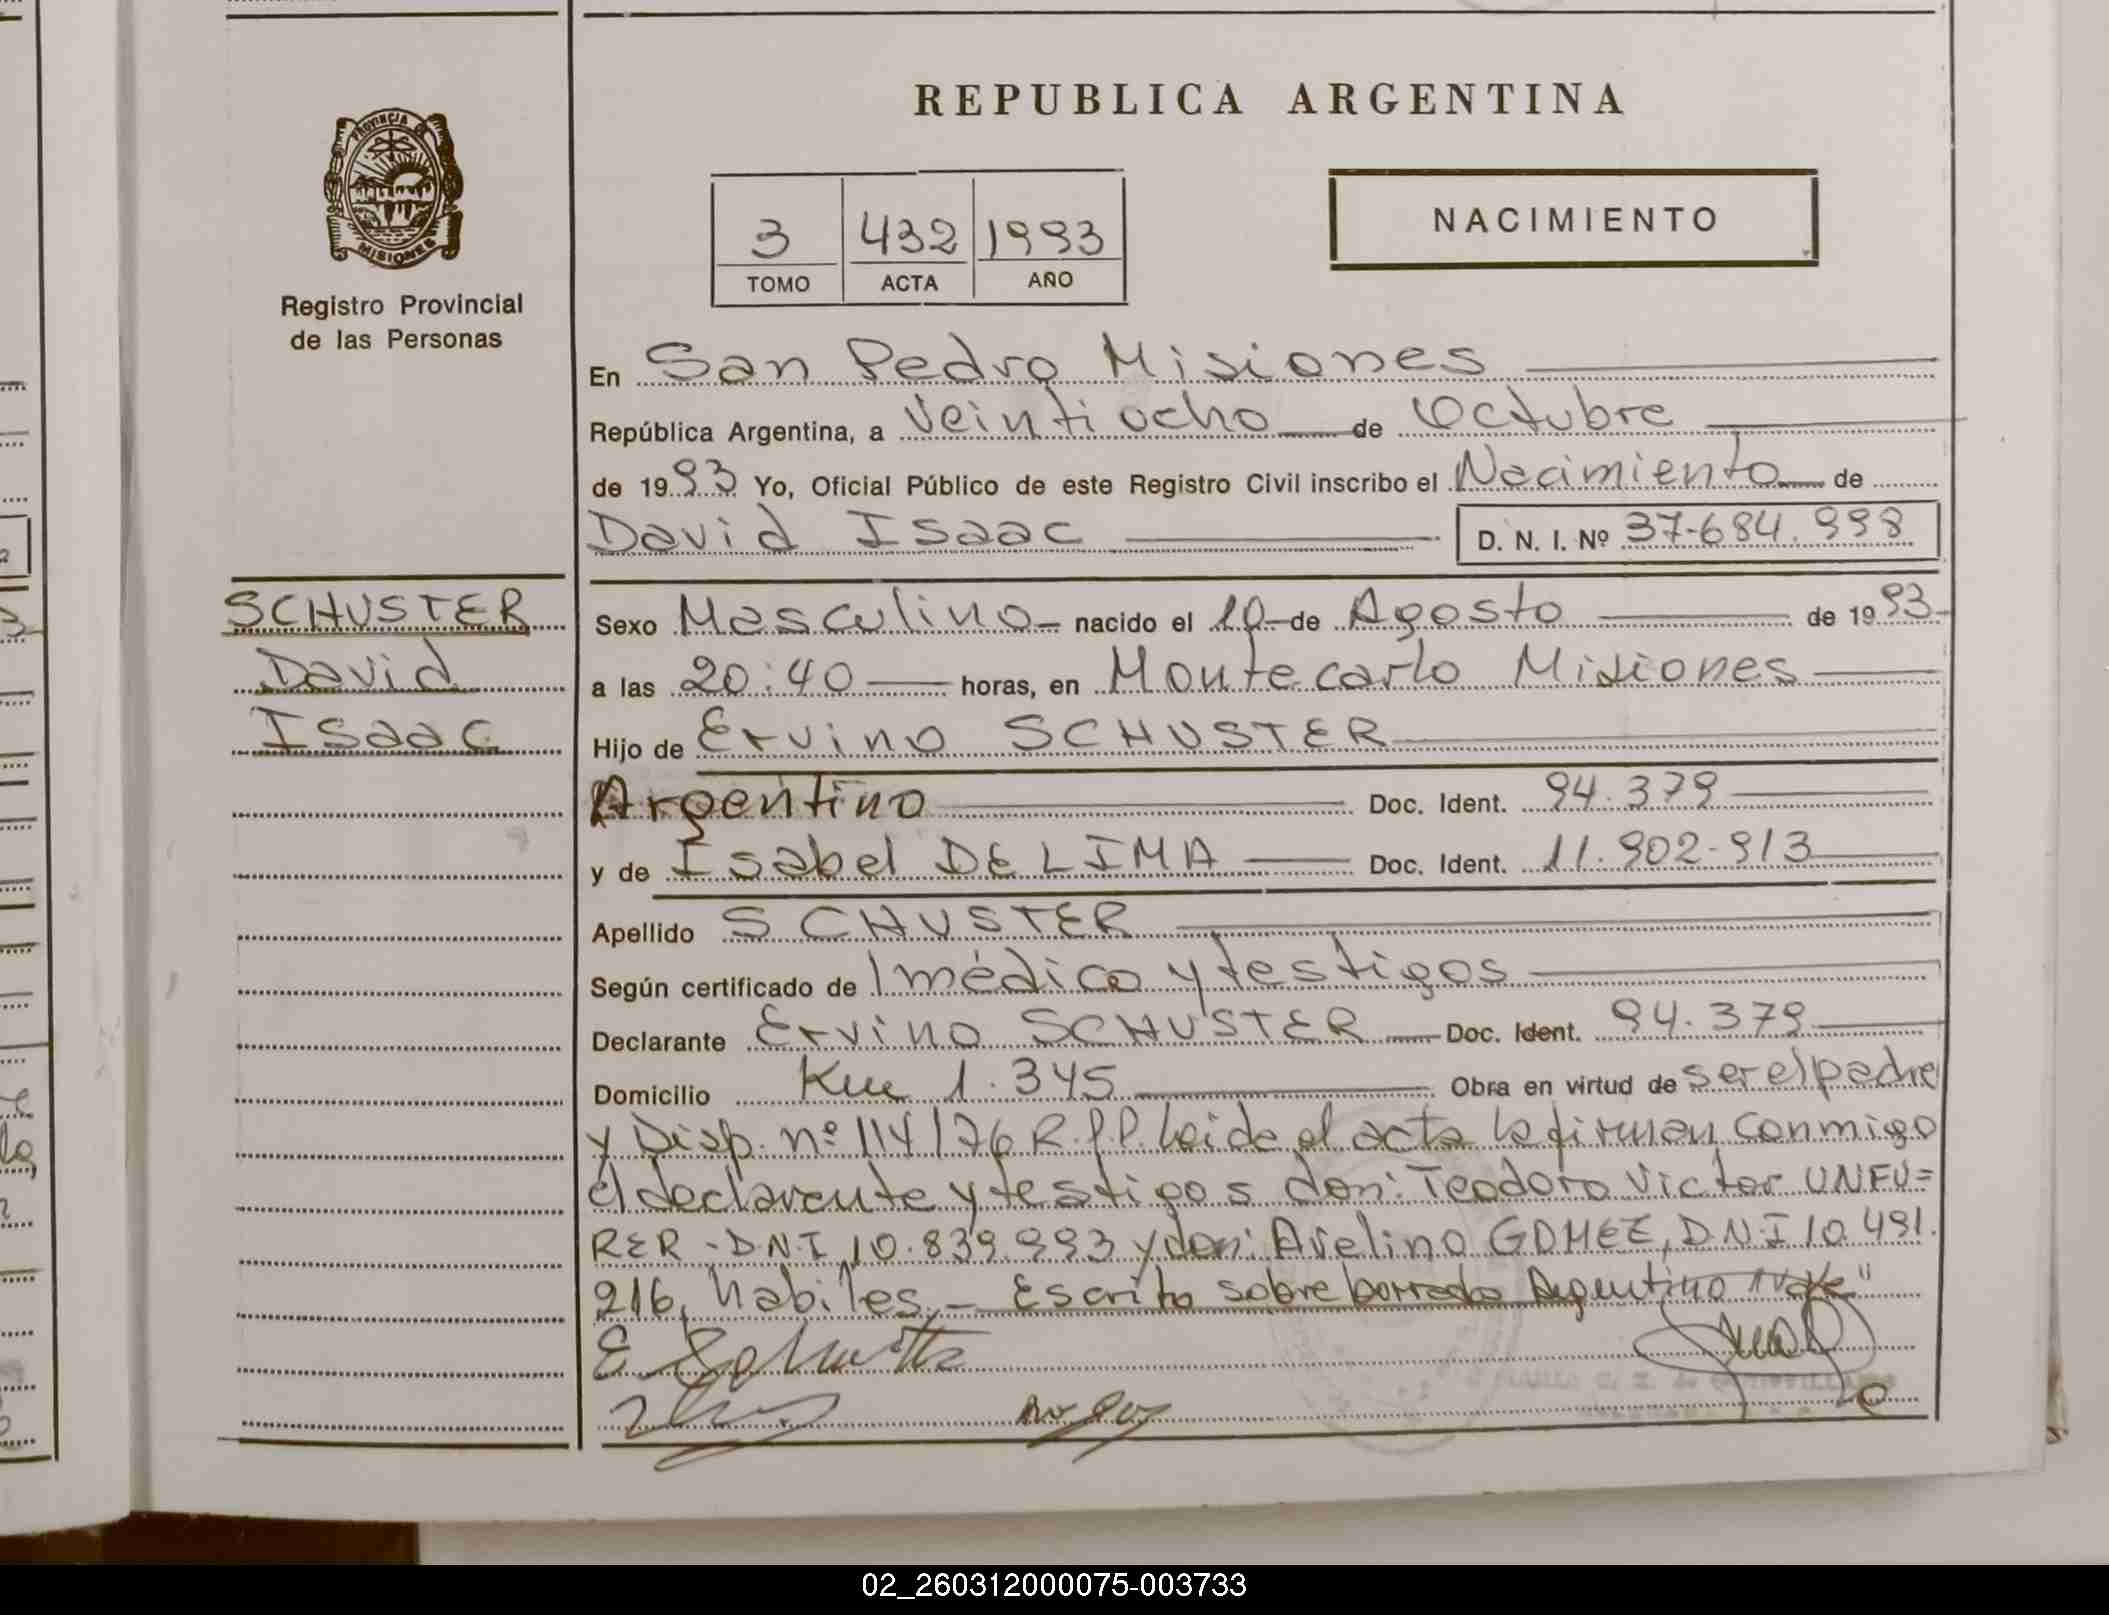 REPUBLICA ARGENTINA
PROVINCIA DE
MISIONES
Registro Provincial
de las Personas
3 432 1993
TOMO ACTA AÑO
NACIMIENTO
En San Pedro Misiones
República Argentina, a Veintiocho de Octubre
de 1993 Yo, Oficial Público de este Registro Civil inscribo el Nacimiento de
David Isaac D. N. I. Nº 37-684.998
SCHUSTER
David
Isaac
Sexo Masculino nacido el 10 de Agosto de 1993
a las 20:40 horas, en Montecarlo Misiones
Hijo de Ervino SCHUSTER
Argentino Doc. Ident. 94.379
y de Isabel DE LIMA Doc. Ident. 11.902-913
Apellido SCHUSTER
Según certificado de 1 médico y testigos
Declarante Ervino SCHUSTER Doc. Ident. 94.379
Domicilio Km 1.345 Obra en virtud de ser el padre
y Disp. nº 114/76 R.P.P. Leida el acta la firman conmigo
el declarante y testigos don: Teodoro Victor UNFU=
RER - D.N.I 10.839.993 y don: Avelino GOMEZ, D.N.I 10.491.
216, habiles. - Escrito sobre borrado Argentino Vale"
02_260312000075-003733